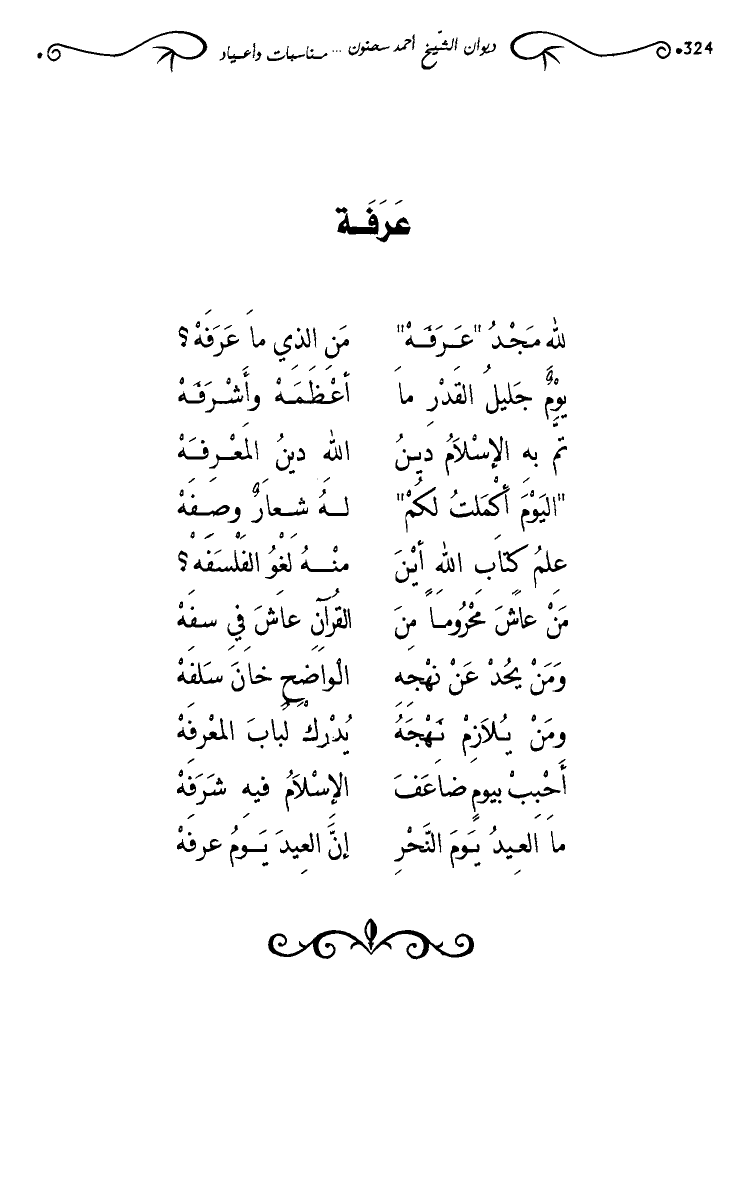 324 ديوان الشيخ أحمد سحنون ... مناسبات وأعياد
عَرَفَـة
لله مَجْدُ "عَـرَفَـهْ" مَنِ الذي ما عَرَفَهْ؟
يوْمٌ جَليلُ القَدْرِ ما أعْظَمَـهْ وأَشْـرَفَـهْ
تمَّ به الإسْلاَمُ ديـنُ الله دينُ المَعْـرِفـَهْ
"اليَوْمَ أَكْمَلتُ لكُمْ" لـهُ شعـارٌ وصِـفَهْ
علمُ كتَابِ اللهِ أيْنَ منْـهُ لغْوُ الفَلْسَفَهْ؟
مَنْ عاشَ مَحْرُومـاً مِنَ القرآنِ عاشَ في سفَهْ
وَمَنْ يَحُدْ عَنْ نهْجِهِ الْواضحِ خانَ سَلفَهْ
ومَنْ يـُلاَزِمْ نَـهْجَهُ يُدْرِكْ لُبابَ المَعْرفَهْ
أَحْبِبْ بيومٍ ضاعَفَ الإسْلاَمُ فيهِ شَرَفَهْ
ما العِيدُ يَومَ النَّحْرِ إنَّ العِيدَ يَـومُ عرفَهْ